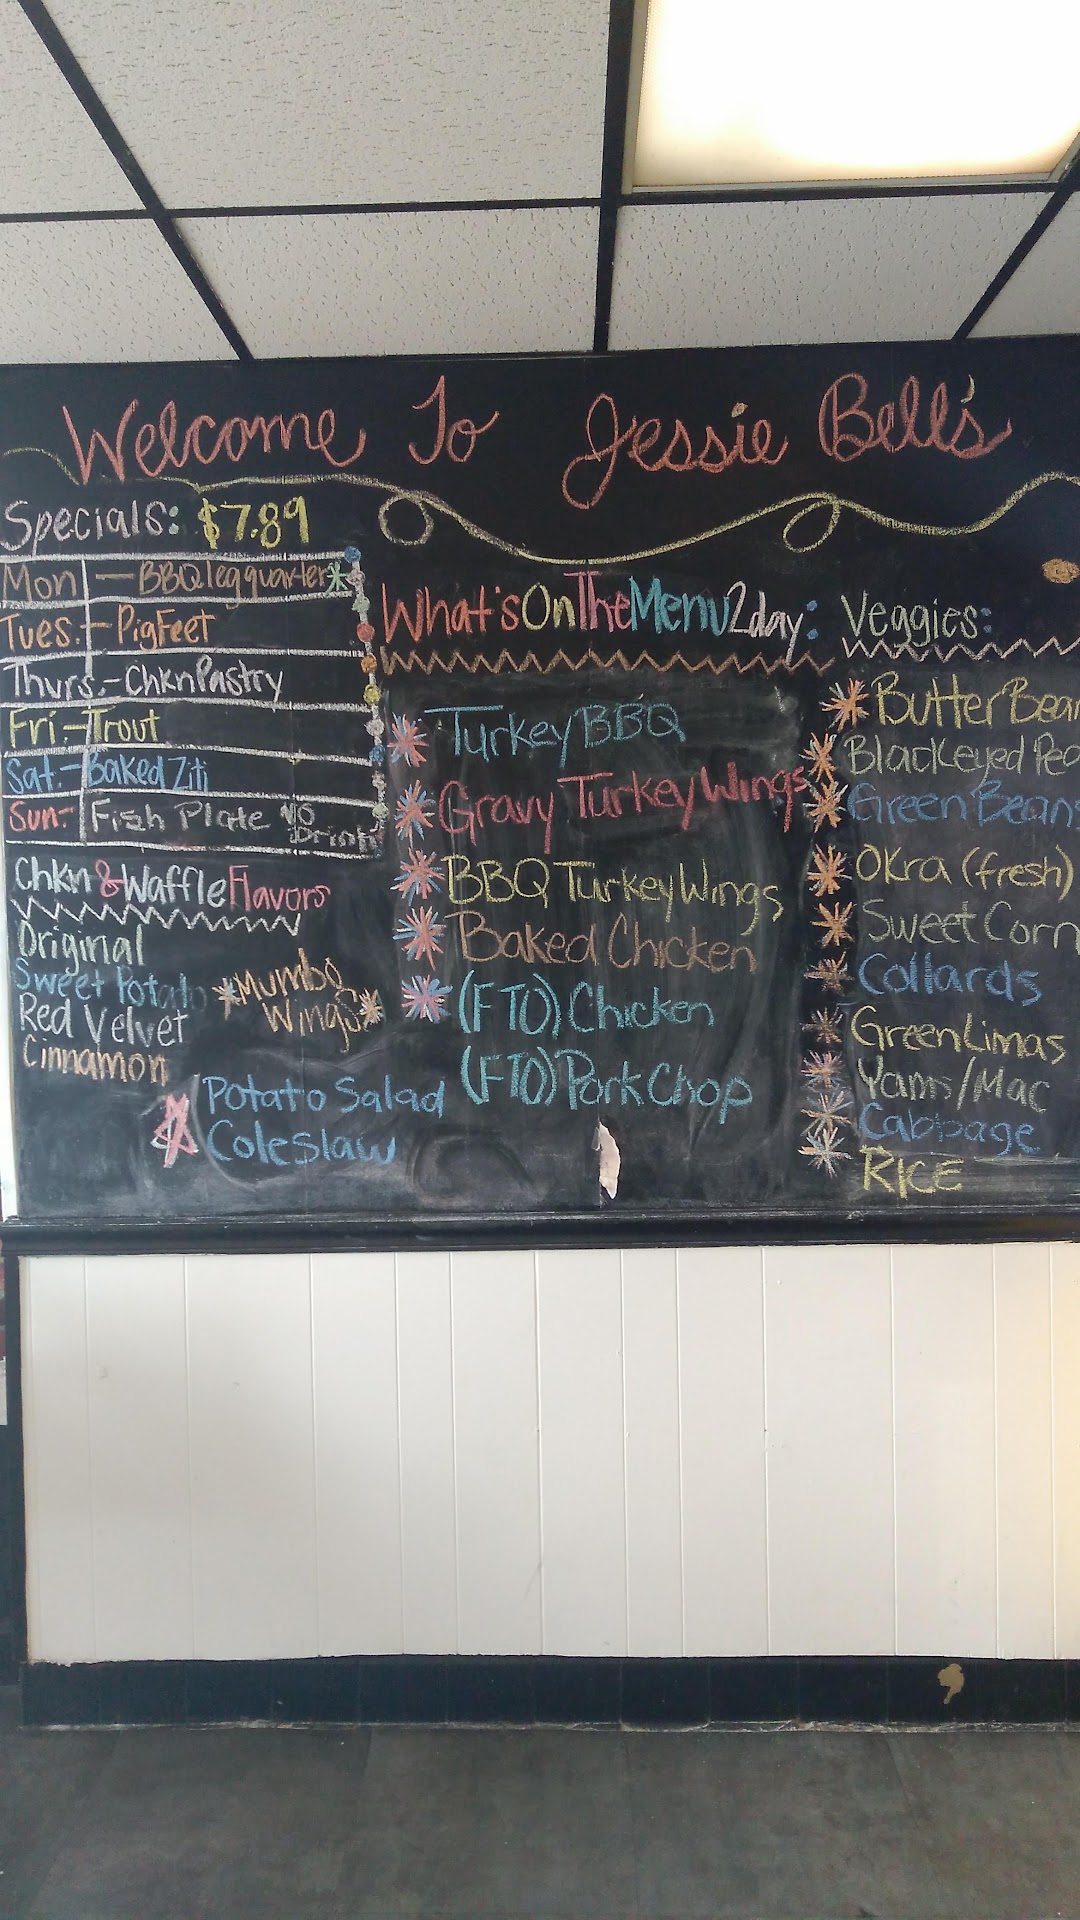 Welcome To Jessie Bell's
Specials: $7.89
Mon - BBQ leg quarter
Tues. - Pig Feet
Thurs. - Chkn Pastry
Fri - Trout
Sat. - Baked Ziti
Sun - Fish Plate No Drink
Chkn & Waffle Flavors
Original
Sweet Potato
Red Velvet
Cinnamon
Mumbo
Wings
Potato Salad
Coleslaw
What's On The Menu 2day:
Turkey BBQ
Gravy Turkey Wings
BBQ Turkey Wings
Baked Chicken
(FTO) Chicken
(FTO) Pork Chop
Veggies:
Butter Bean
Blackeyed Pea
Green Beans
Okra (fresh)
Sweet Corn
Collards
Green Limas
Yams/Mac
Cabbage
RICE